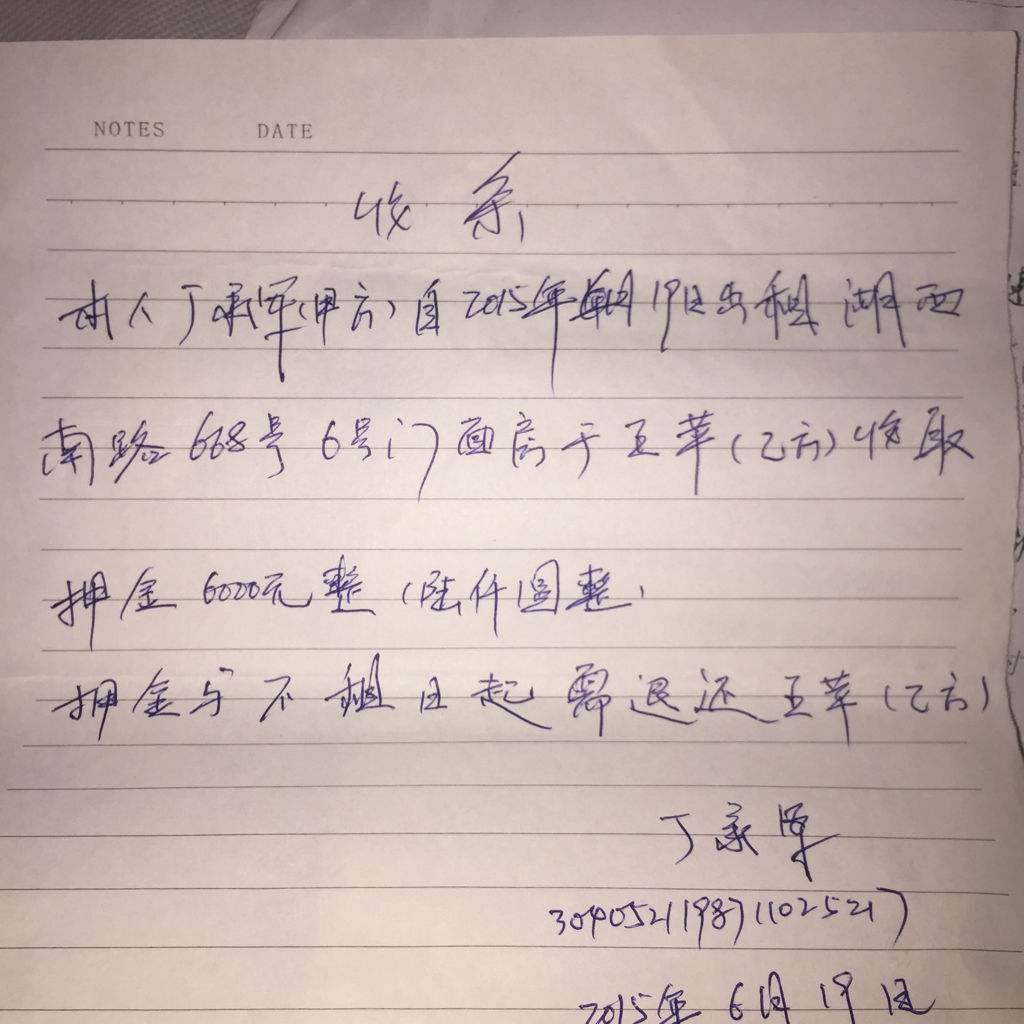 NOTES DATE
收条
本人丁家军(甲方)自2015年6月19日出租湖西
南路668号6号门面房于王苹(乙方)收取
押金6000元整(陆仟圆整)
押金与不租日起需退还王苹(乙方)
丁家军
2015年6月19日